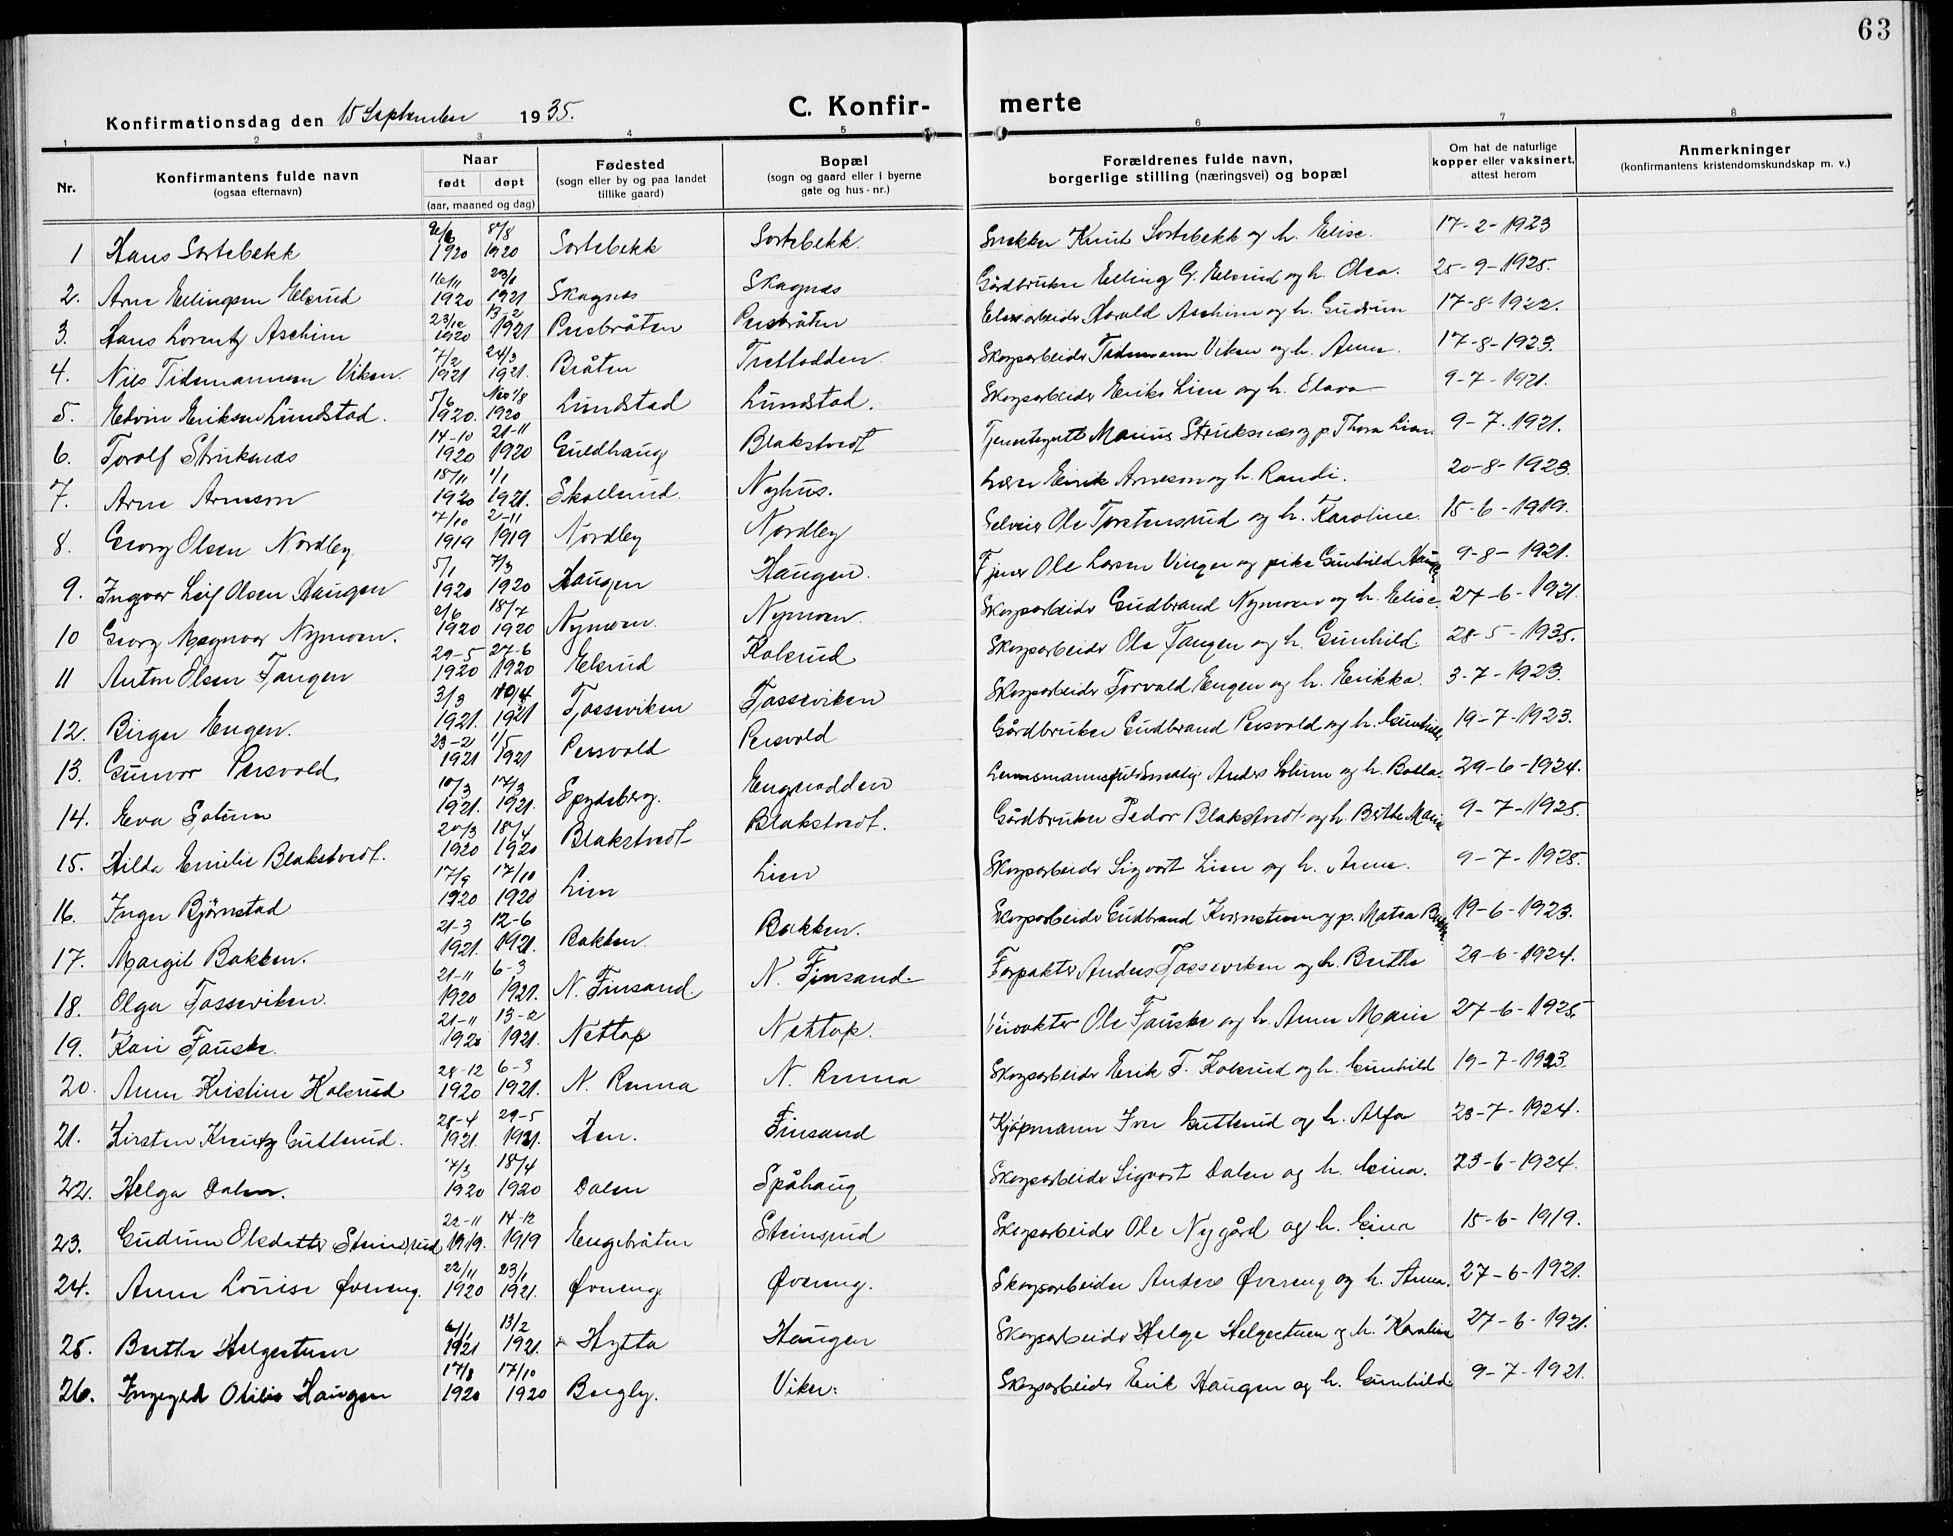 63
C. Konfir- merte
Konfirmationsdag den 15 September 1935.
1 2 3 4 5 6 7 8
Nr. Konfirmantens fulde navn (ogsaa efternavn) Naar født døpt (aar, maaned og dag) Fødested (sogn eller by og paa landet tillike gaard) Bopæl (sogn og gaard eller i byerne gate og hus-nr.) Forældrenes fulde navn, borgerlige stilling (næringsvei) og bopæl Om hat de naturlige kopper eller vaksinert, attest herom Anmerkninger (konfirmantens kristendomskundskap m. v.)
1 Hans Sortebekk 1920 8/8 1920 Sortebekk Sortebekk. Snekker Knut Sortebekk og h. Elise. 17-2-1923
2. Arne Ellingsen Elsrud 16/11 1920 23/1 1921 Skagnes Skagnes Gårdbruker Elling G. Elsrud og h. Olea. 25-9-1925.
3. Hans Lorentz Aschim 23/12 1920 13-2 1921 Persbråten Persbråten Harald Aschim og h. Gudrun 17-8-1922.
4. Nils Tidemannsen Viken. 7/2 1921 24/3 1921. Bråten Tretlodden Skogsarbeider Tidemann Viken og h. Anne. 17-8-1923.
5. Edvin Eriksen Lundstad. 5/6 1920. 1/8 1920 Lundstad Lundstad. Skogsarbeider Erik Lien og h. 9-7-1921.
6. Torolf Struksnæs 14-10 1920 21-11 1920 Guldhaug Blakstvedt Tjenestegutt Marius Struksnæs og p. Thora Lien. 9-7-1921.
7. Arne Arnesen 18/11 1920 1/1 1921. Skollerud Nyhus. Eirik Arnesen og h. Randi. 20-8-1923.
8. Georg Olsen Nordby 7/10 1919 2-11 1919 Nordby Nordby Selveier Ole Torstensrud og h. Karoline. 15-6-1919.
9. Ingvar Leif Olsen Haugen 5/1 1920 7/3 1920 Haugen Haugen. Tjener Ole Larsen Vinger og pike Gunhild Haugen 9-8-1921.
10 Georg Magnvar Nymoen. 2/6 1920 18/7 1920 Nymoen. Nymoen. Skogsarbeider Gudbrand Nymoen og h. Elise. 27-6-1921.
11 Anton Olsen Tangen 29-5 1920 27-6 1920 Elsrud Kolsrud Skogsarbeider Ole Tangen og h. Gunhild. 28-5-1935.
12. Birger Engen. 3/3 1921. 10/4 1921 Tosseviken Tosseviken Skogsarbeider Torvald Engen og h. Erikka. 3-7-1923.
13. Gunvor Persvold 23-2 1921 1/5 1921 Persvold Persvold Gårdbruker Gudbrand Persvold og h. Gunhild 19-7-1923.
14. Eva Solum 10/3 1921. 17/3 1921. Spydeberg. Engnodden Lensmannsfullmektig Anders Solum og h. Borla. 29-6-1924.
15. Hilda Emilie Blakstvedt. 20/3 1920 18/4 1920 Blakstvedt Blakstvedt. Gårdbruker Peder Blakstvedt og h. Berthe Marie 9-7-1925.
16. Inger Bjørnstad 17/9 1920 17/10 1920 Lien Lien Skogsarbeider Sigvart Lien og h. Anne. 9-7-1925.
17. Margit Bakken. 21-3 1921. 12-6 1921. Bakken. Bakken. Skogsarbeider Gudbrand og p. Matea 19-6-1923.
18. Olga Tosseviken. 21-11 1920 6-3 1921. N. Finsand. N. Finsand. Forpakter Anders Tosseviken og h. Berthe 29-6-1924.
19. Kari Fauske. 21-11 1920 13-2 1921. Nettop Nettop. Veivokter Ole Fauske og h. Anne Marie 27-6-1925.
20. Anne Kristine Kolsrud 28-12 1920 6-3 1921. N. Renna N. Renna Skogsarbeider Erik F. Kolsrud og h. Gunhild 19-7-1923.
21. Kirsten Kreutz Gutterud. 28-4 1921. 29-5 1921. Hen. Finsand Kjøpmann Iver Gutterud og h. Alfa 23-7-1924.
22. Helga Dalen. 7/3 1920 18/4 1920 Dalen Spåhaug Skogsarbeider Sigvart Dalen og h. Gina. 23-6-1924.
23. Gudrun Olsdatter Steinsrud 22-11 1919. 14-12 1919 Engebråten Steinsrud Skogsarbeider Ole Nygård og h. Gina 15-6-1919.
24. Anne Louise Øveneng. 22/11 1920 23/1 1921. Øveneng Øvereng. Skogsarbeider Anders Øvereng og h. Anna. 27-6-1921.
25. Berthe Helgestuen 6/1 1921 13/2 1921. Hytta Haugen Skogsarbeider Helge Helgestuen og h. Karoline 27-6-1921.
26. Ingegerd Otilie Haugen 17/8 1920 17/10 1920 Bergly. Viker. Skogsarbeider Erik Haugen og h. Gunhild 9-7-1921.